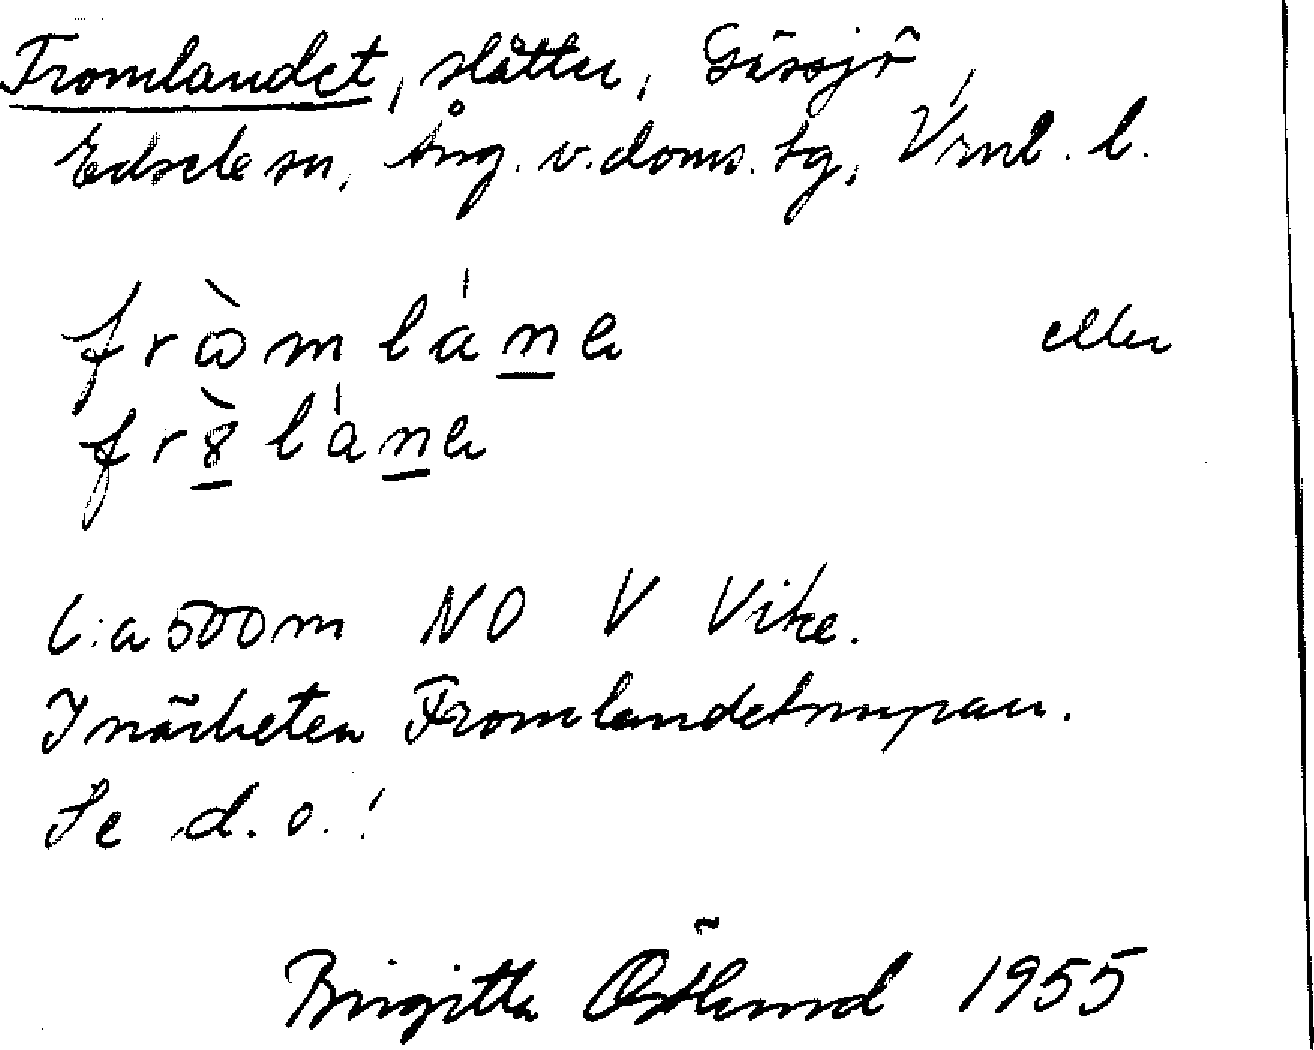 Fromlandet, slåtter, Gässjö,
Edsele sn, Ång. v. doms. sg, Vrnl. l.
fròmlán̲e eller
frò̲lán̲e
C:a 500 m NO V Vike.
I närheten Fromlandetmyran.
Se d.o.!
Birgitta Östlund 1955